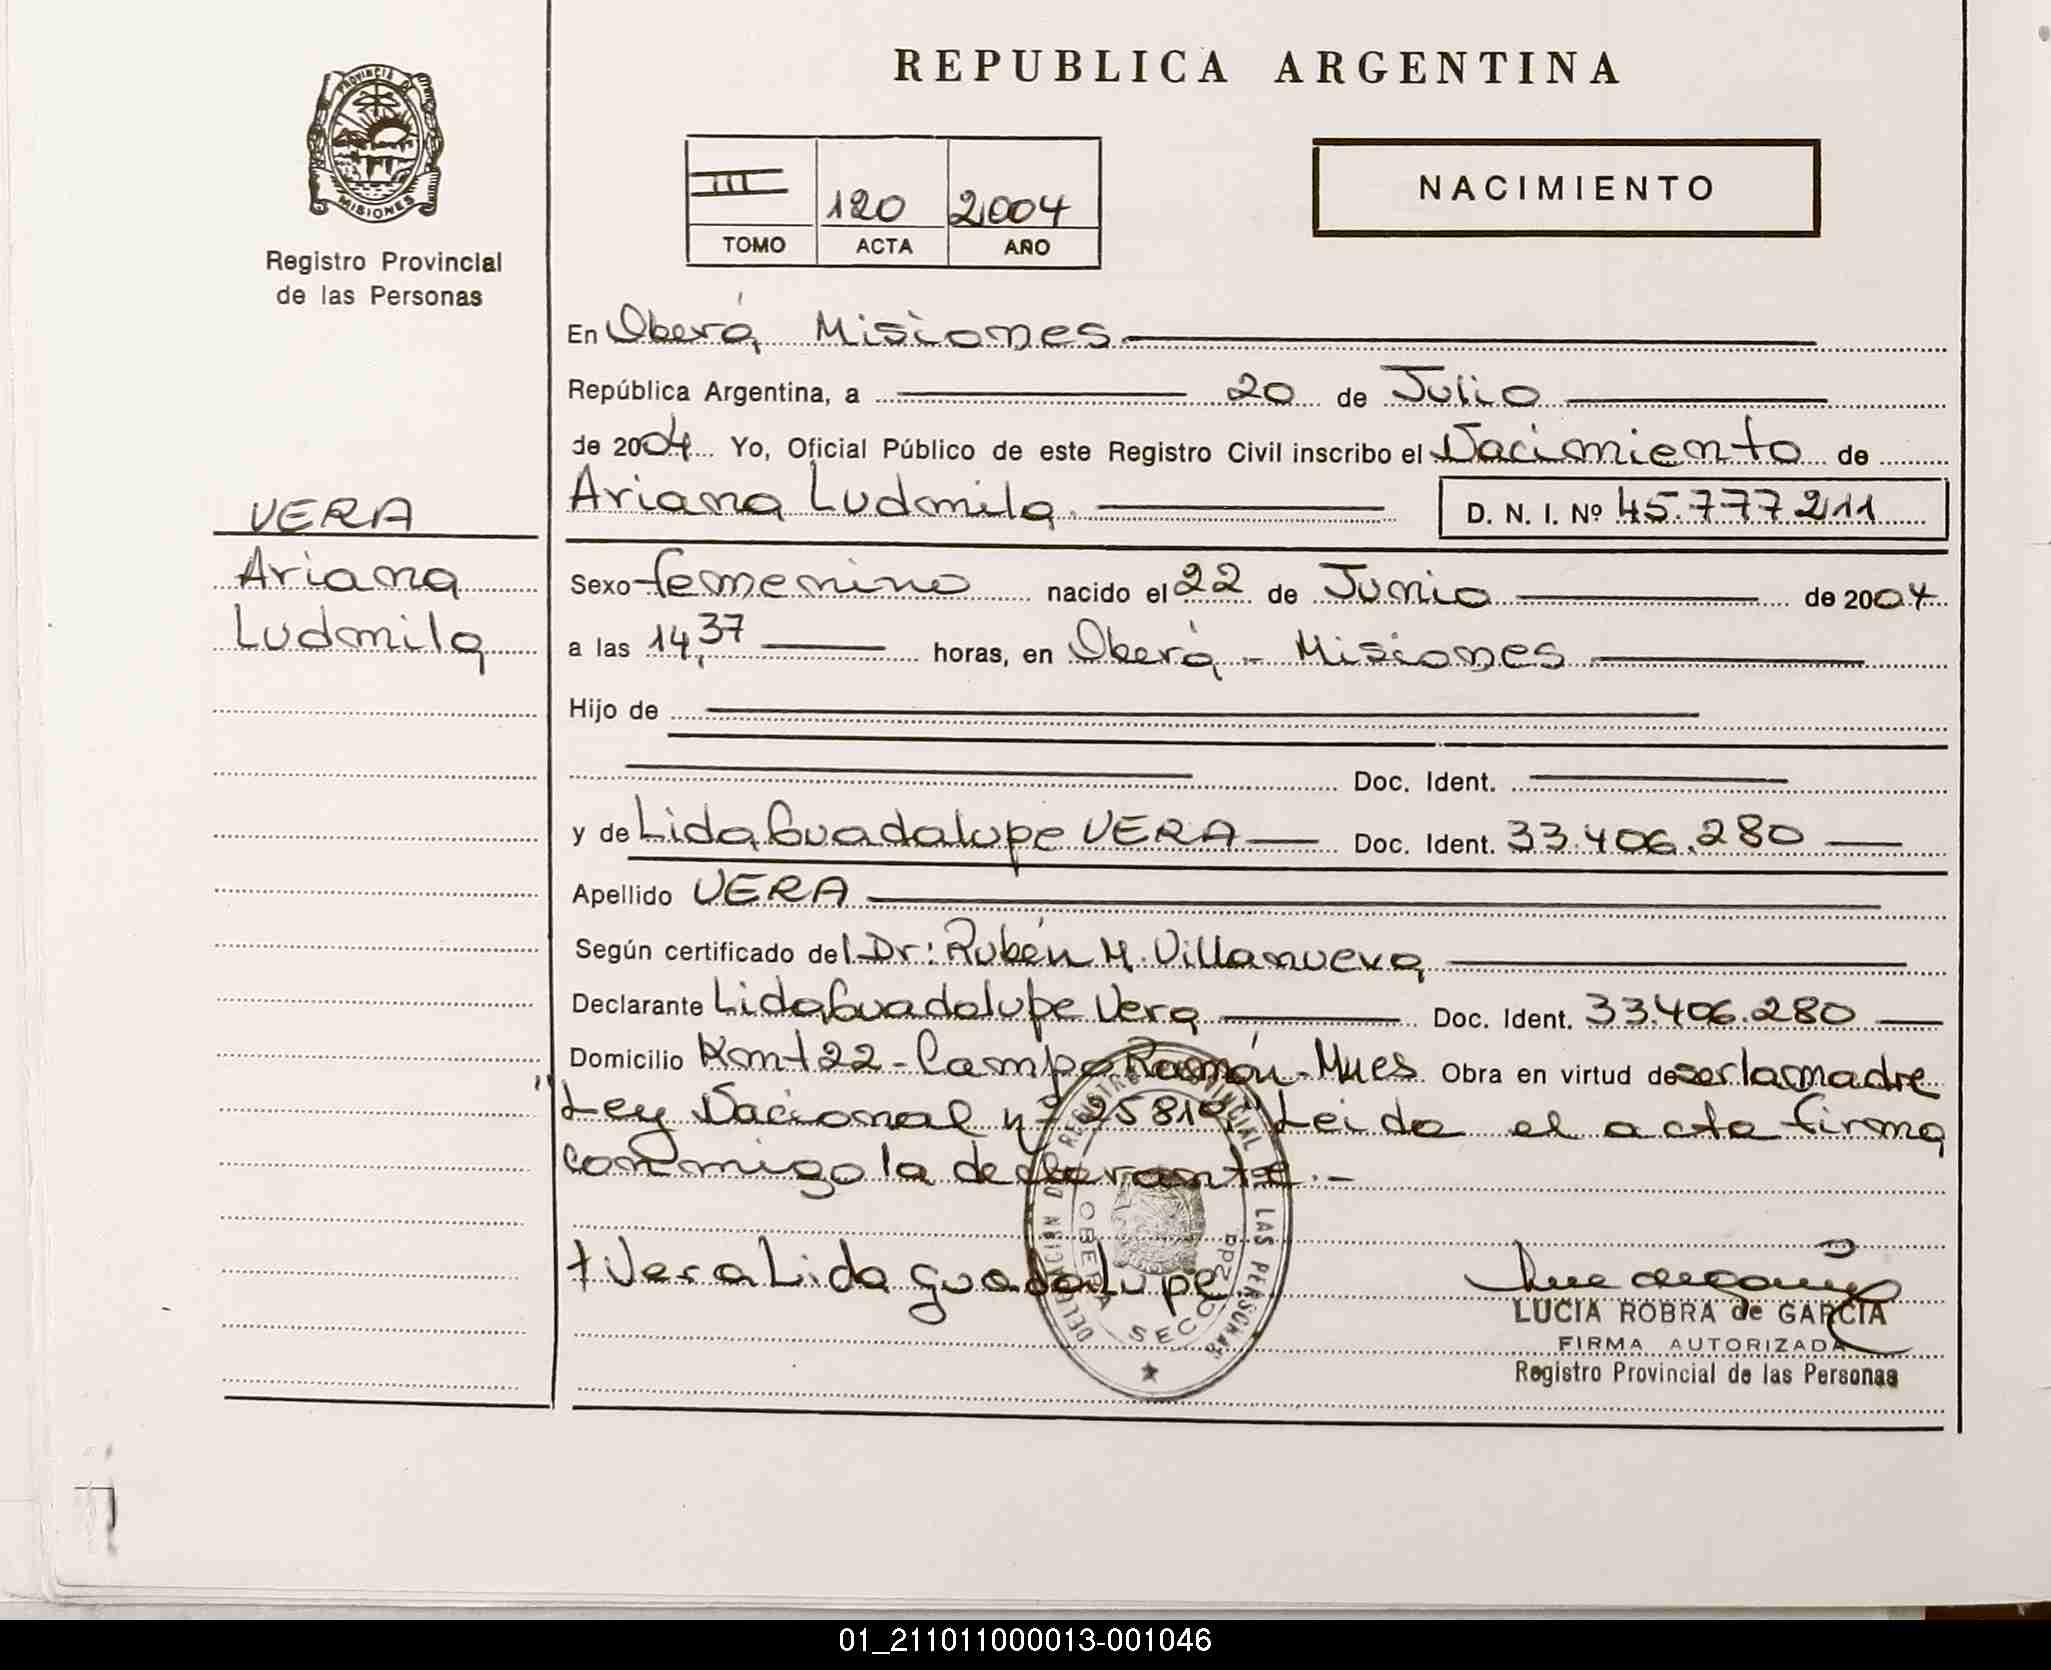 REPUBLICA ARGENTINA
PROVINCIA DE MISIONES
Registro Provincial
de las Personas
III 120 2004
TOMO ACTA AÑO
NACIMIENTO
En Oberá Misiones
República Argentina, a 20 de Julio
de 2004 Yo, Oficial Público de este Registro Civil inscribo el Nacimiento de
Ariana Ludmila D. N. I. Nº 45.777211
VERA
Ariana
Ludmila
Sexo femenino nacido el 22 de Junio de 2004
a las 14,37 horas, en Oberá - Misiones
Hijo de
Doc. Ident.
y de Lida Guadalupe VERA Doc. Ident. 33.406.280
Apellido VERA
Según certificado del Dr: Rubén M. Villanueva
Declarante Lida Guadalupe Vera Doc. Ident. 33.406.280
Domicilio Kmt 22 - Campo Ramón - Mnes Obra en virtud de ser la madre
"Ley Nacional nº 25819" Leida el acta firma
conmigo la declarante.-
+ Vera Lida guadalupe
DELEGACION DEL REGISTRO PROVINCIAL DE LAS PERSONAS
OBERA SECC. 2da
LUCIA ROBRA de GARCIA
FIRMA AUTORIZADA
Registro Provincial de las Personas
01_211011000013-001046